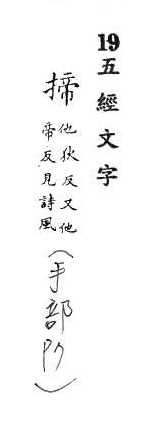 19五經文字
揥
他狄反又他
帝反見詩風
(手部P7)